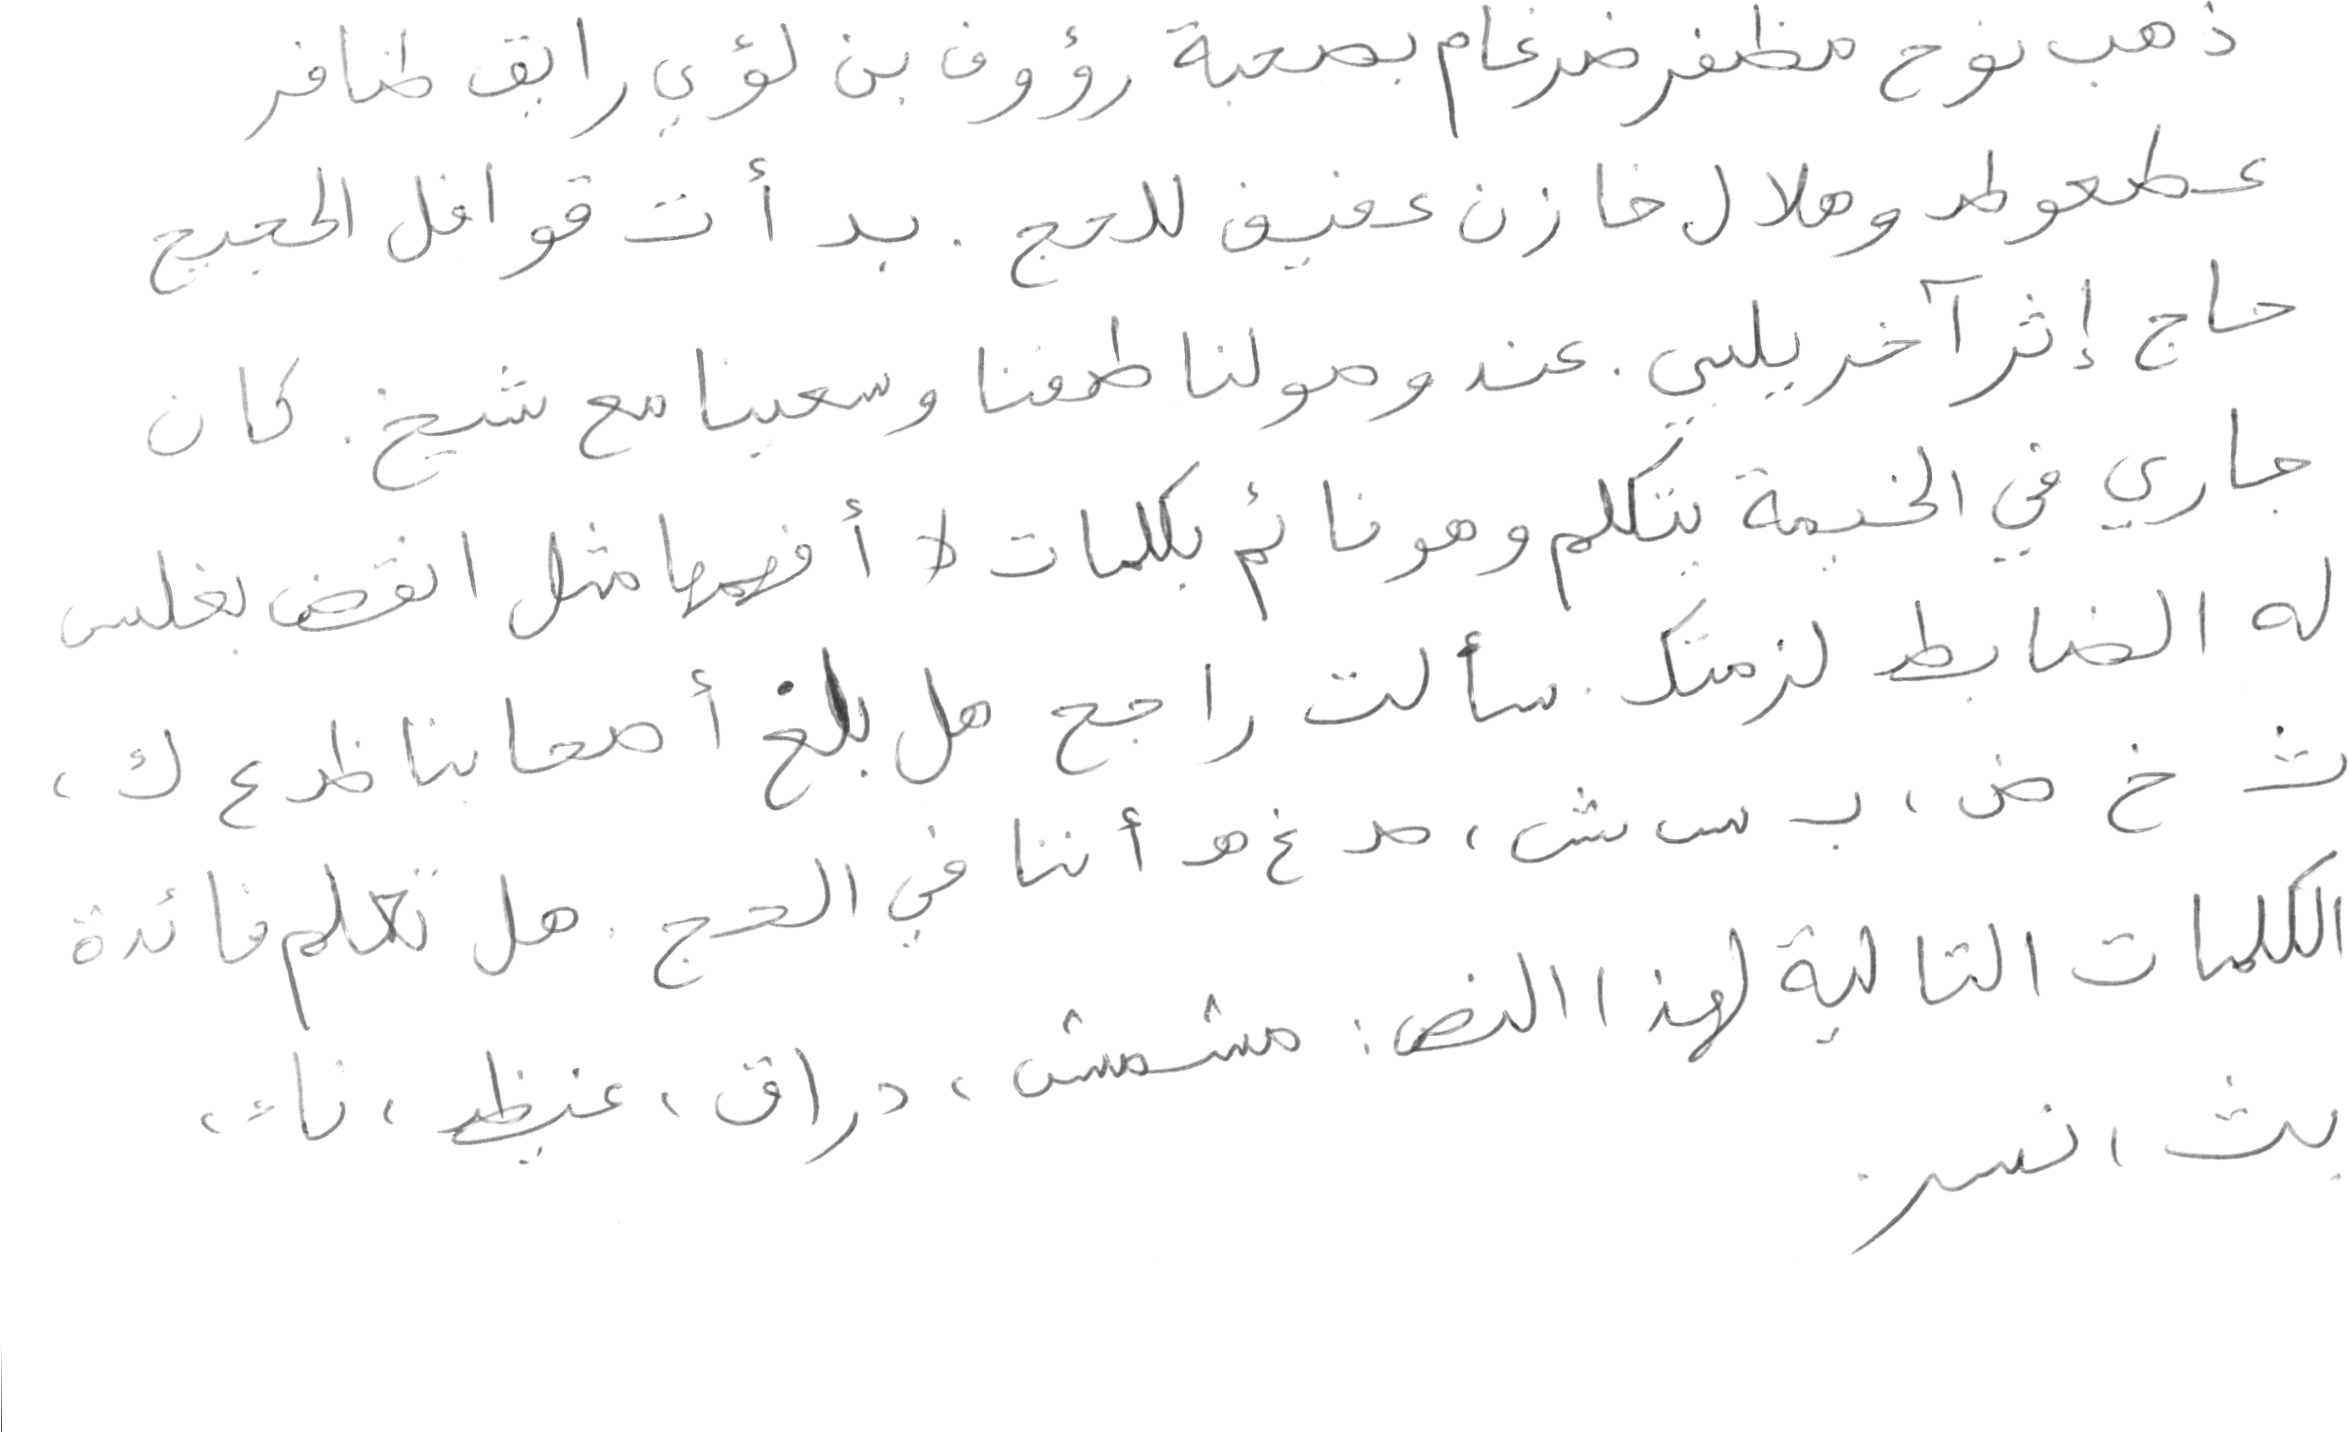 ذهب نوح مظفر ضرغام بصحبة رؤوف بن لؤي رايق ظافر
عطعوط وهلال خازن عفيف للحج . بدأت قوافل الحجيج
حاج إثر آخر يلبي . عند وصولنا طفنا وسعينا مع شيخ . كان
جاري في الخيمة يتكلم وهو نائم بكلمات لا أفهمها مثل انقض بغلس
له الضابط لزمتك . سألت راجح هل بلغ أصحابنا ظ ع ك ،
ث خ ض ، ب س ش ، ص غ ه أننا في الحج . هل تعلم فائدة
الكلمات التالية لهذا النص : مشمش ، دراق ، غيظ ، ناث ،
يث ، نسر .